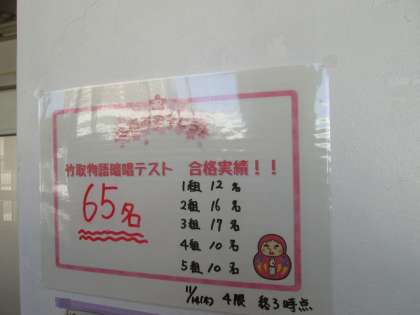 竹取物語暗唱テスト 合格実績！！
65名
1組 12名
2組 16名
3組 17名
4組 10名
5組 10名
11/14(木) 4限 終了時点